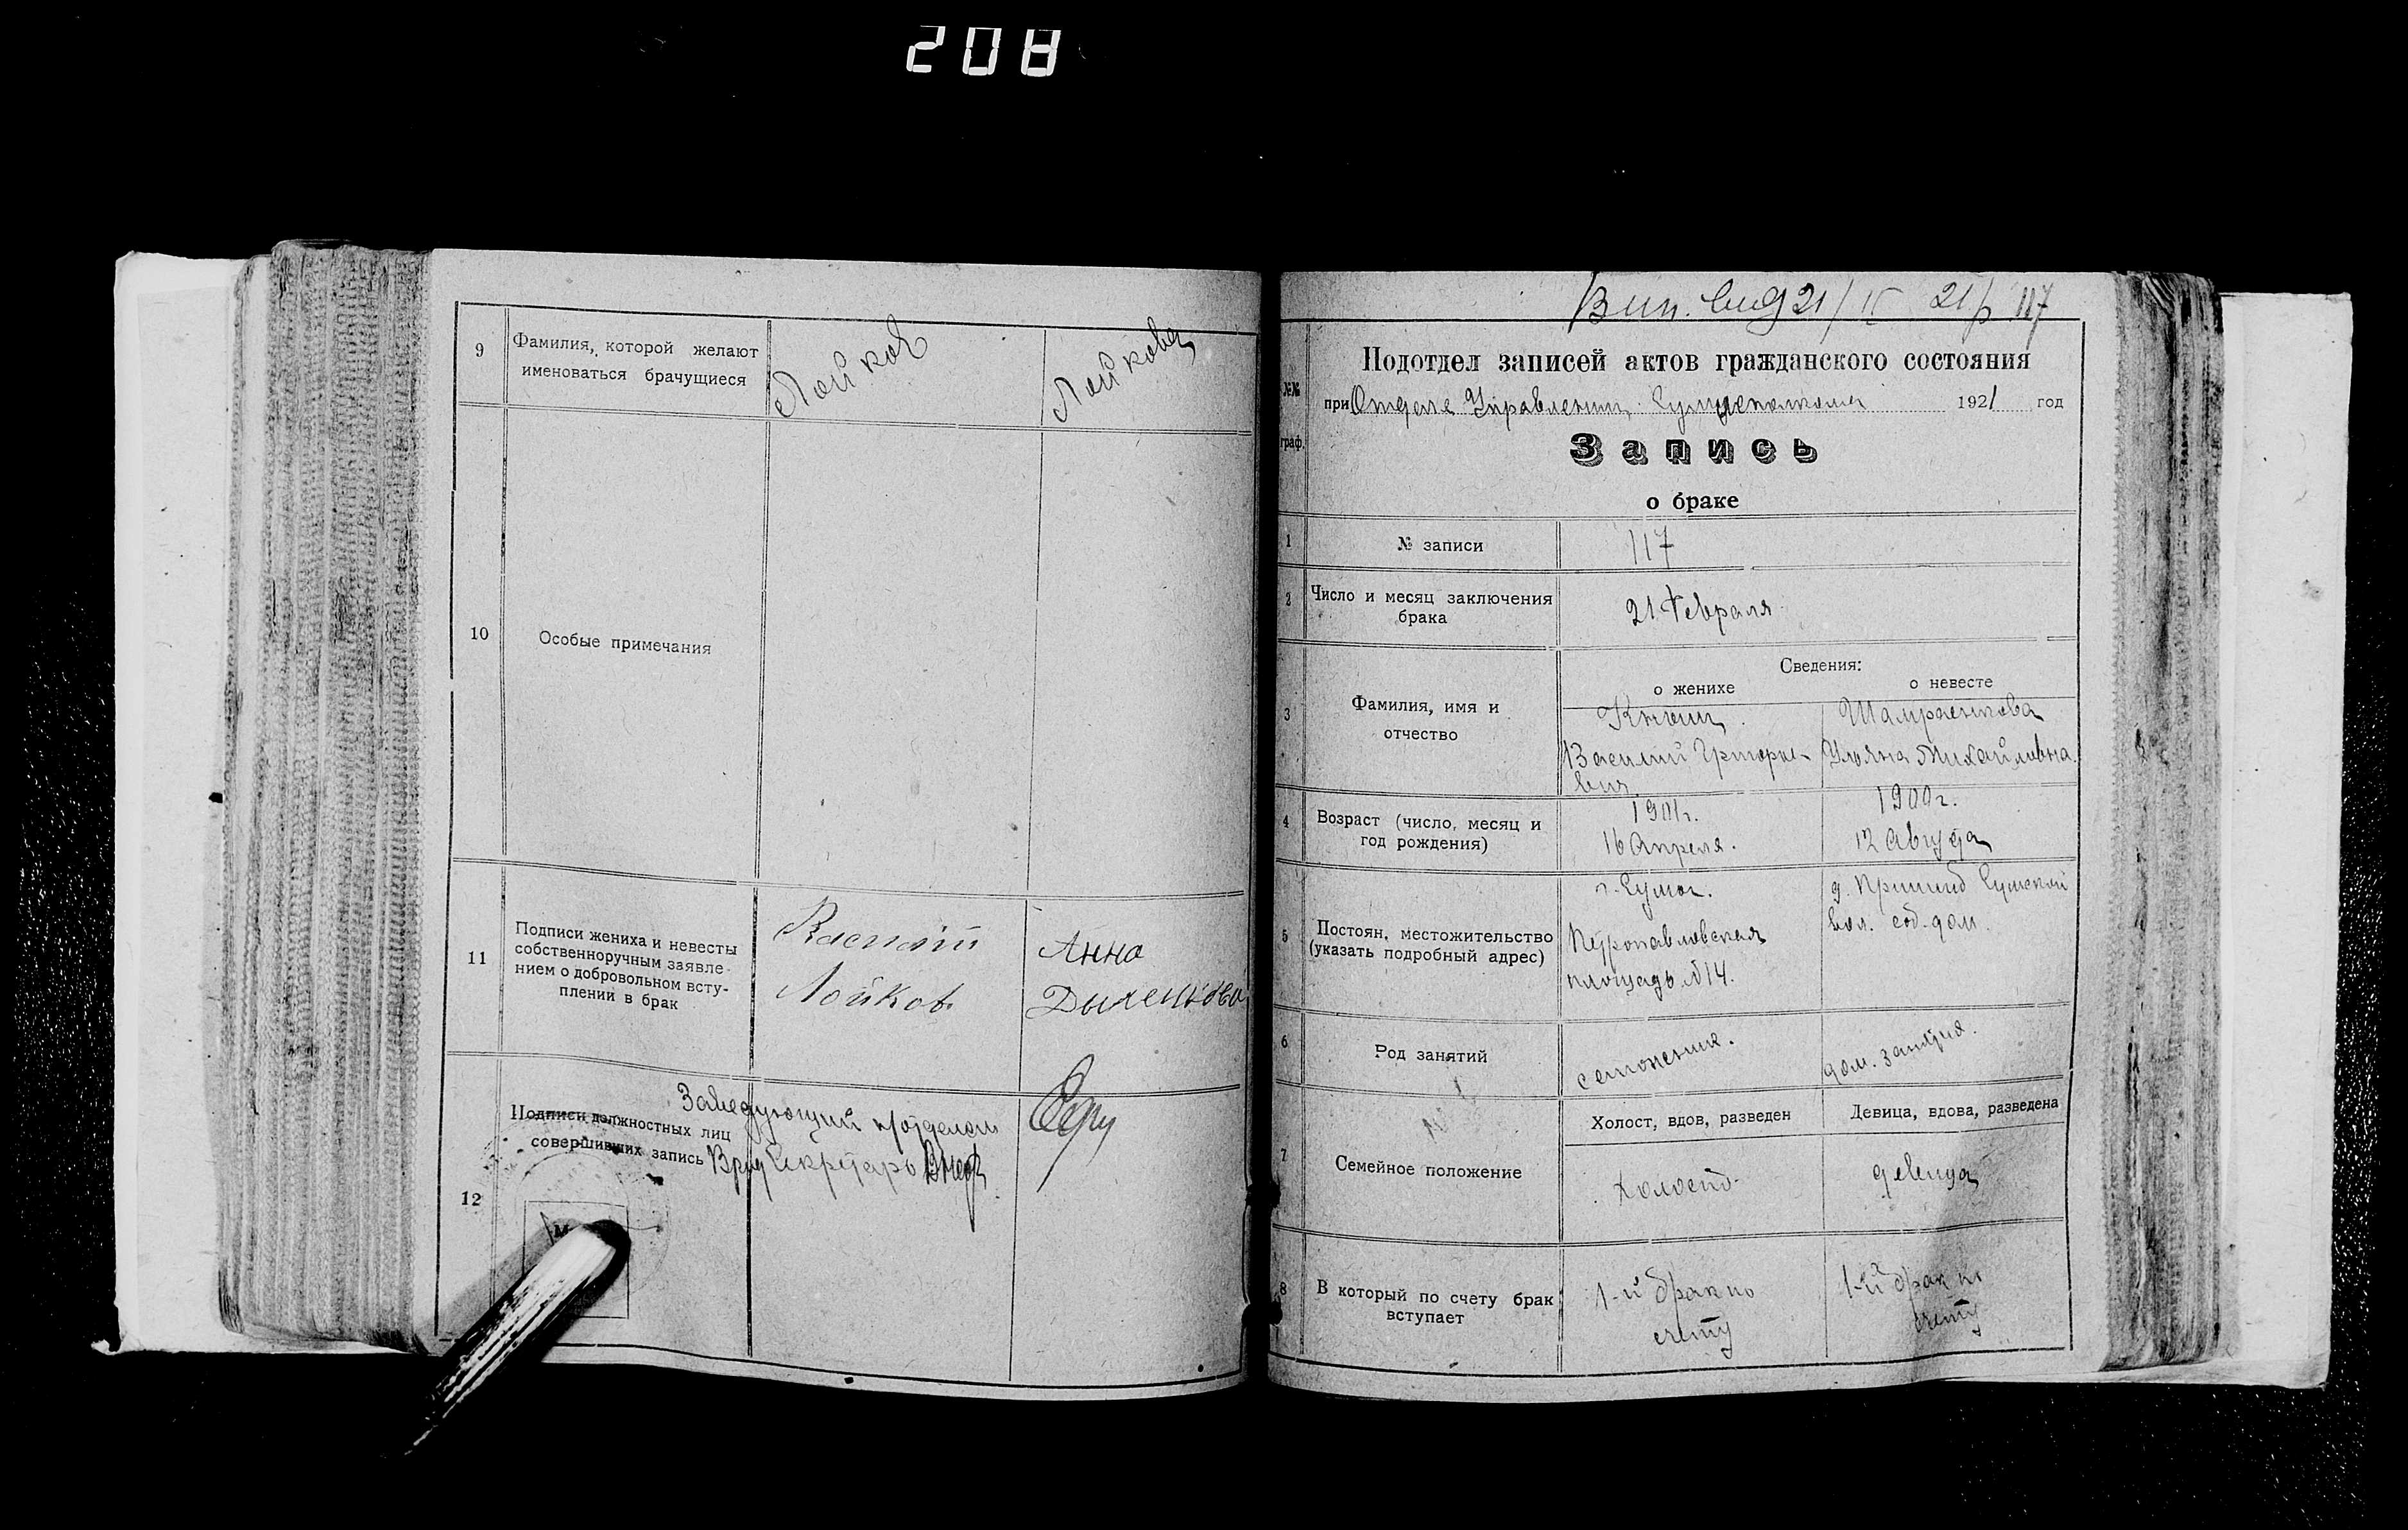 208
9
Фамилия, которой желают
именоваться брачущиеся
Лойков
Лойкова
10
Особые примечания
11
Подписи жениха и невесты
собственноручным заявле-
нием о добровольном всту-
плении в брак
Лойков
Анна
12
Подписи должностных лиц
совершивших запись
Заведующий п/отделом
Врид Секретарь
Вип. 21/II 21 р. 117
№№
граф.
Подотдел записей актов гражданского состояния
при Отделе Управления 1921 год
Запись
о браке
1
№ записи
117
2
Число и месяц заключения
брака
21 Февраля
3
Фамилия, имя и
отчество
Сведения:
о женихе
о невесте
Книш
Василий Григорье-
вич
Шамраенкова
Ульяна Михайловна
4
Возраст (число, месяц и
год рождения)
1901 г.
16 Апреля.
1900 г.
12 Августа
5
Постоян, местожительство
(указать подробный адрес)
г. Сумы.
Петропавловская
площадь №14.
Сумской
вол. соб. дом.
6
Род занятий
дом. занятия.
7
Семейное положение
Холост, вдов, разведен
Девица, вдова, разведена
холост
девица
8
В который по счету брак
вступает
1-й брак по
счету
1-й брак по
счету